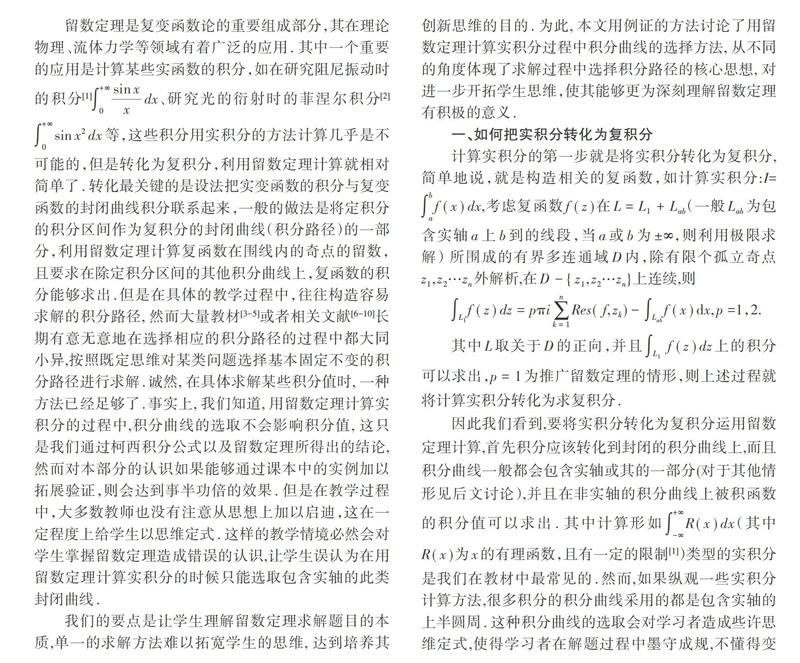 留数定理是复变函数论的重要组成部分,其在理论
物理、流体力学等领域有着广泛的应用.其中一个重要
的应用是计算某些实函数的积分,如在研究阻尼振动时
的积分[1]∫₀^{+∞} sin x / x dx、研究光的衍射时的菲涅尔积分[2]
∫₀^{+∞} sin x² dx 等,这些积分用实积分的方法计算几乎是不
可能的,但是转化为复积分,利用留数定理计算就相对
简单了.转化最关键的是设法把实变函数的积分与复变
函数的封闭曲线积分联系起来,一般的做法是将定积分
的积分区间作为复积分的封闭曲线(积分路径)的一部
分,利用留数定理计算复函数在围线内的奇点的留数,
且要求在除定积分区间的其他积分曲线上,复函数的积
分能够求出.但是在具体的教学过程中,往往构造容易
求解的积分路径,然而大量教材[3-5]或者相关文献[6-10]长
期有意无意地在选择相应的积分路径的过程中都大同
小异,按照既定思维对某类问题选择基本固定不变的积
分路径进行求解.诚然,在具体求解某些积分值时,一种
方法已经足够了.事实上,我们知道,用留数定理计算实
积分的过程中,积分曲线的选取不会影响积分值,这只
是我们通过柯西积分公式以及留数定理所得出的结论,
然而对本部分的认识如果能够通过课本中的实例加以
拓展验证,则会达到事半功倍的效果.但是在教学过程
中,大多数教师也没有注意从思想上加以启迪,这在一
定程度上给学生以思维定式.这样的教学情境必然会对
学生掌握留数定理造成错误的认识,让学生误认为在用
留数定理计算实积分的时候只能选取包含实轴的此类
封闭曲线.
我们的要点是让学生理解留数定理求解题目的本
质,单一的求解方法难以拓宽学生的思维,达到培养其
创新思维的目的.为此,本文用例证的方法讨论了用留
数定理计算实积分过程中积分曲线的选择方法,从不同
的角度体现了求解过程中选择积分路径的核心思想,对
进一步开拓学生思维,使其能够更为深刻理解留数定理
有积极的意义.
一、如何把实积分转化为复积分
计算实积分的第一步就是将实积分转化为复积分,
简单地说,就是构造相关的复函数,如计算实积分:I=
∫ₐᵇ f(x)dx,考虑复函数 f(z)在 L = L₁ + L_{ab}(一般 L_{ab} 为包
含实轴 a 上 b 到的线段,当 a 或 b 为 ±∞,则利用极限求
解)所围成的有界多连通域 D 内,除有限个孤立奇点
z₁,z₂⋯zₙ 外解析,在 D - { z₁,z₂⋯zₙ}上连续,则
∫_{L₁} f(z)dz = pπi ∑_{k=1}^{n} Res( f,zₖ) - ∫_{L_{ab}} f(x)dx,p =1,2.
其中 L 取关于 D 的正向,并且 ∫_{L₁} f(z)dz 上的积分
可以求出,p = 1 为推广留数定理的情形,则上述过程就
将计算实积分转化为求复积分.
因此我们看到,要将实积分转化为复积分运用留数
定理计算,首先积分应该转化到封闭的积分曲线上,而且
积分曲线一般都会包含实轴或其的一部分(对于其他情
形见后文讨论),并且在非实轴的积分曲线上被积函数
的积分值可以求出.其中计算形如 ∫_{-∞}^{+∞} R(x)dx(其中
R(x)为 x 的有理函数,且有一定的限制[1])类型的实积分
是我们在教材中最常见的.然而,如果纵观一些实积分
计算方法,很多积分的积分曲线采用的都是包含实轴的
上半圆周.这种积分曲线的选取会对学习者造成些许思
维定式,使得学习者在解题过程中墨守成规,不懂得变